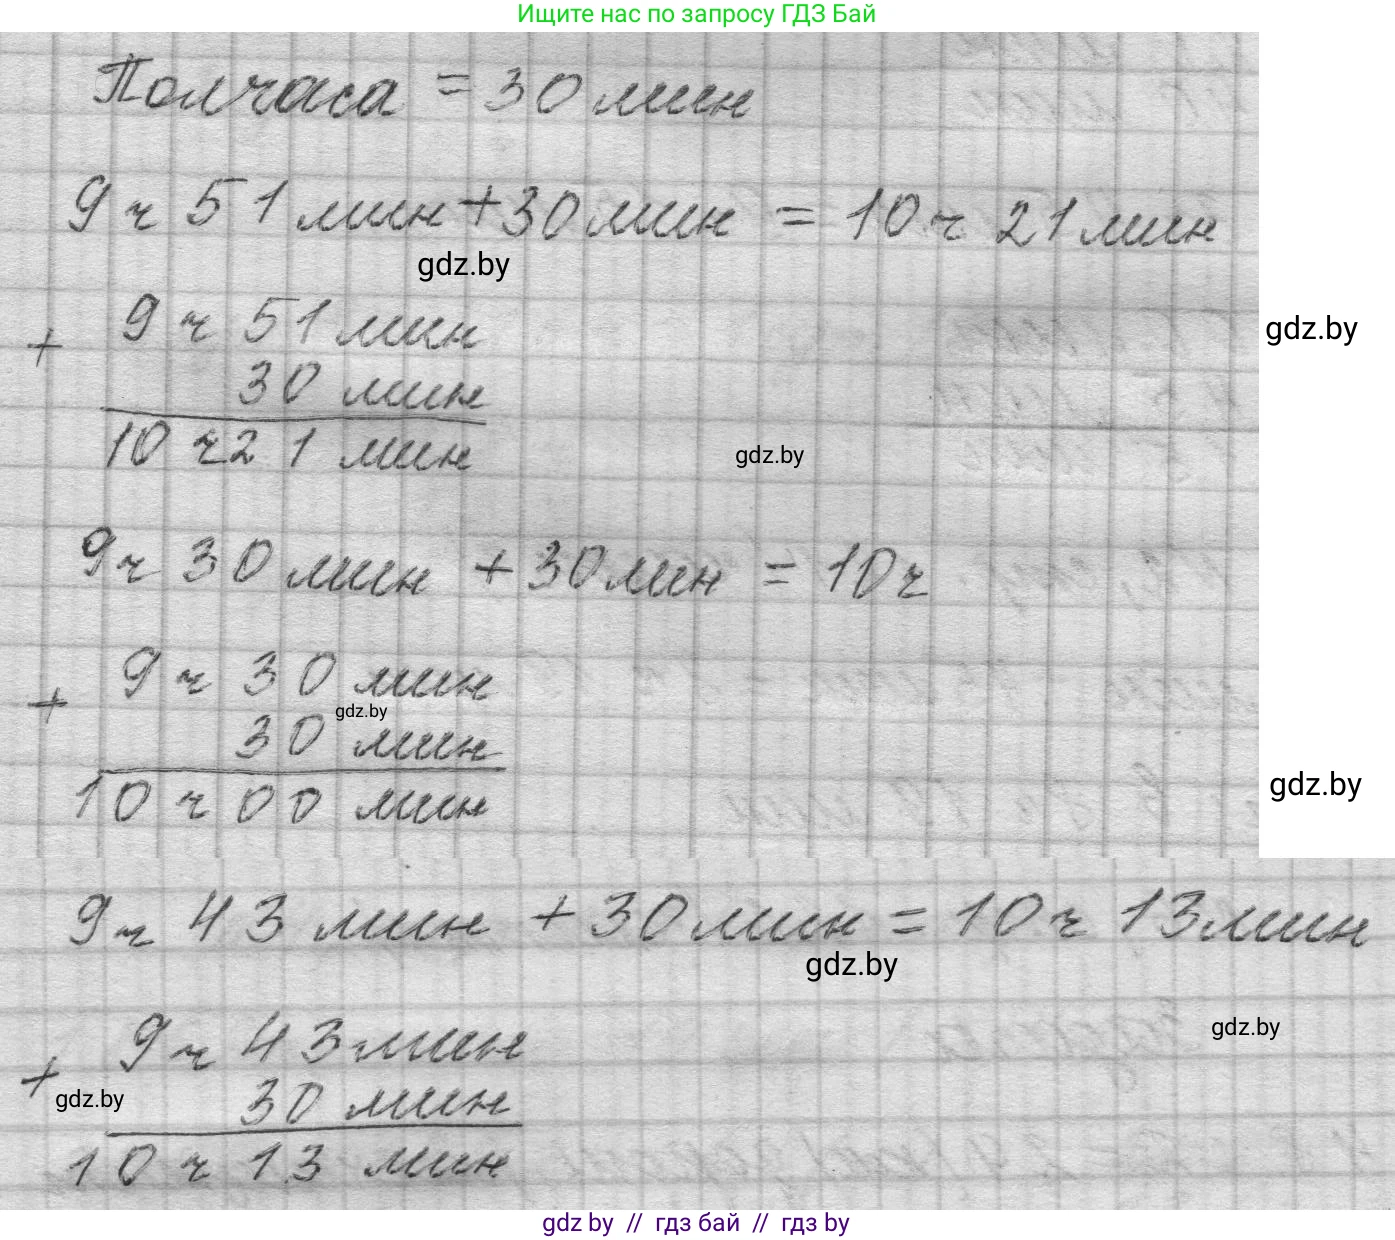 Ищите нас по запросу ГДЗ Бай
Полчаса = 30 мин
9 ч 51 мин + 30 мин = 10 ч 21 мин
gdz.by
9 ч 51 мин
gdz.by
+
30 мин
10 ч 21 мин
gdz.by
9 ч 30 мин + 30 мин = 10 ч
9 ч 30 мин
+
gdz.by
30 мин
gdz.by
10 ч 00 мин
9 ч 43 мин + 30 мин = 10 ч 13 мин
gdz.by
gdz.by
9 ч 43 мин
+
gdz.by
30 мин
10 ч 13 мин
gdz by // гдз бай // гдз by